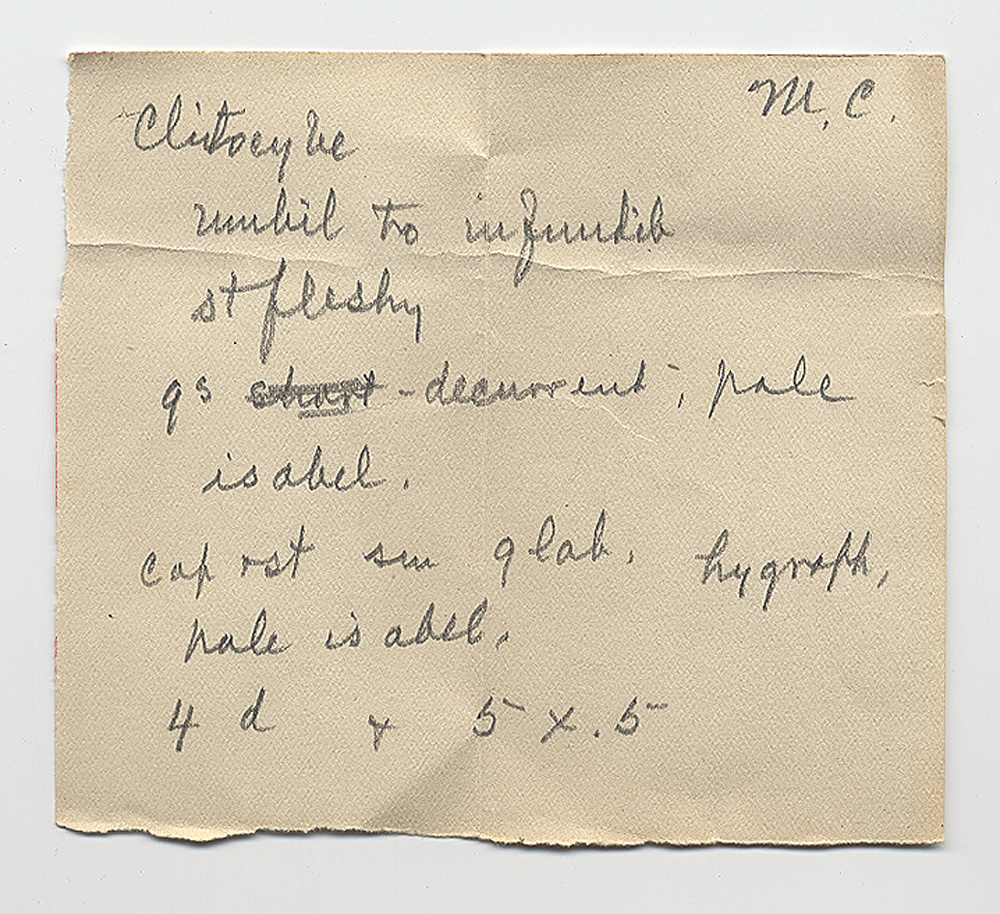 M. C.
Clitocybe
umbil to infundib
st fleshy
gs short - decurrent; pale
isabel.
cap rst sm glab. hygroph,
pale isabel.
4 d + 5 x .5